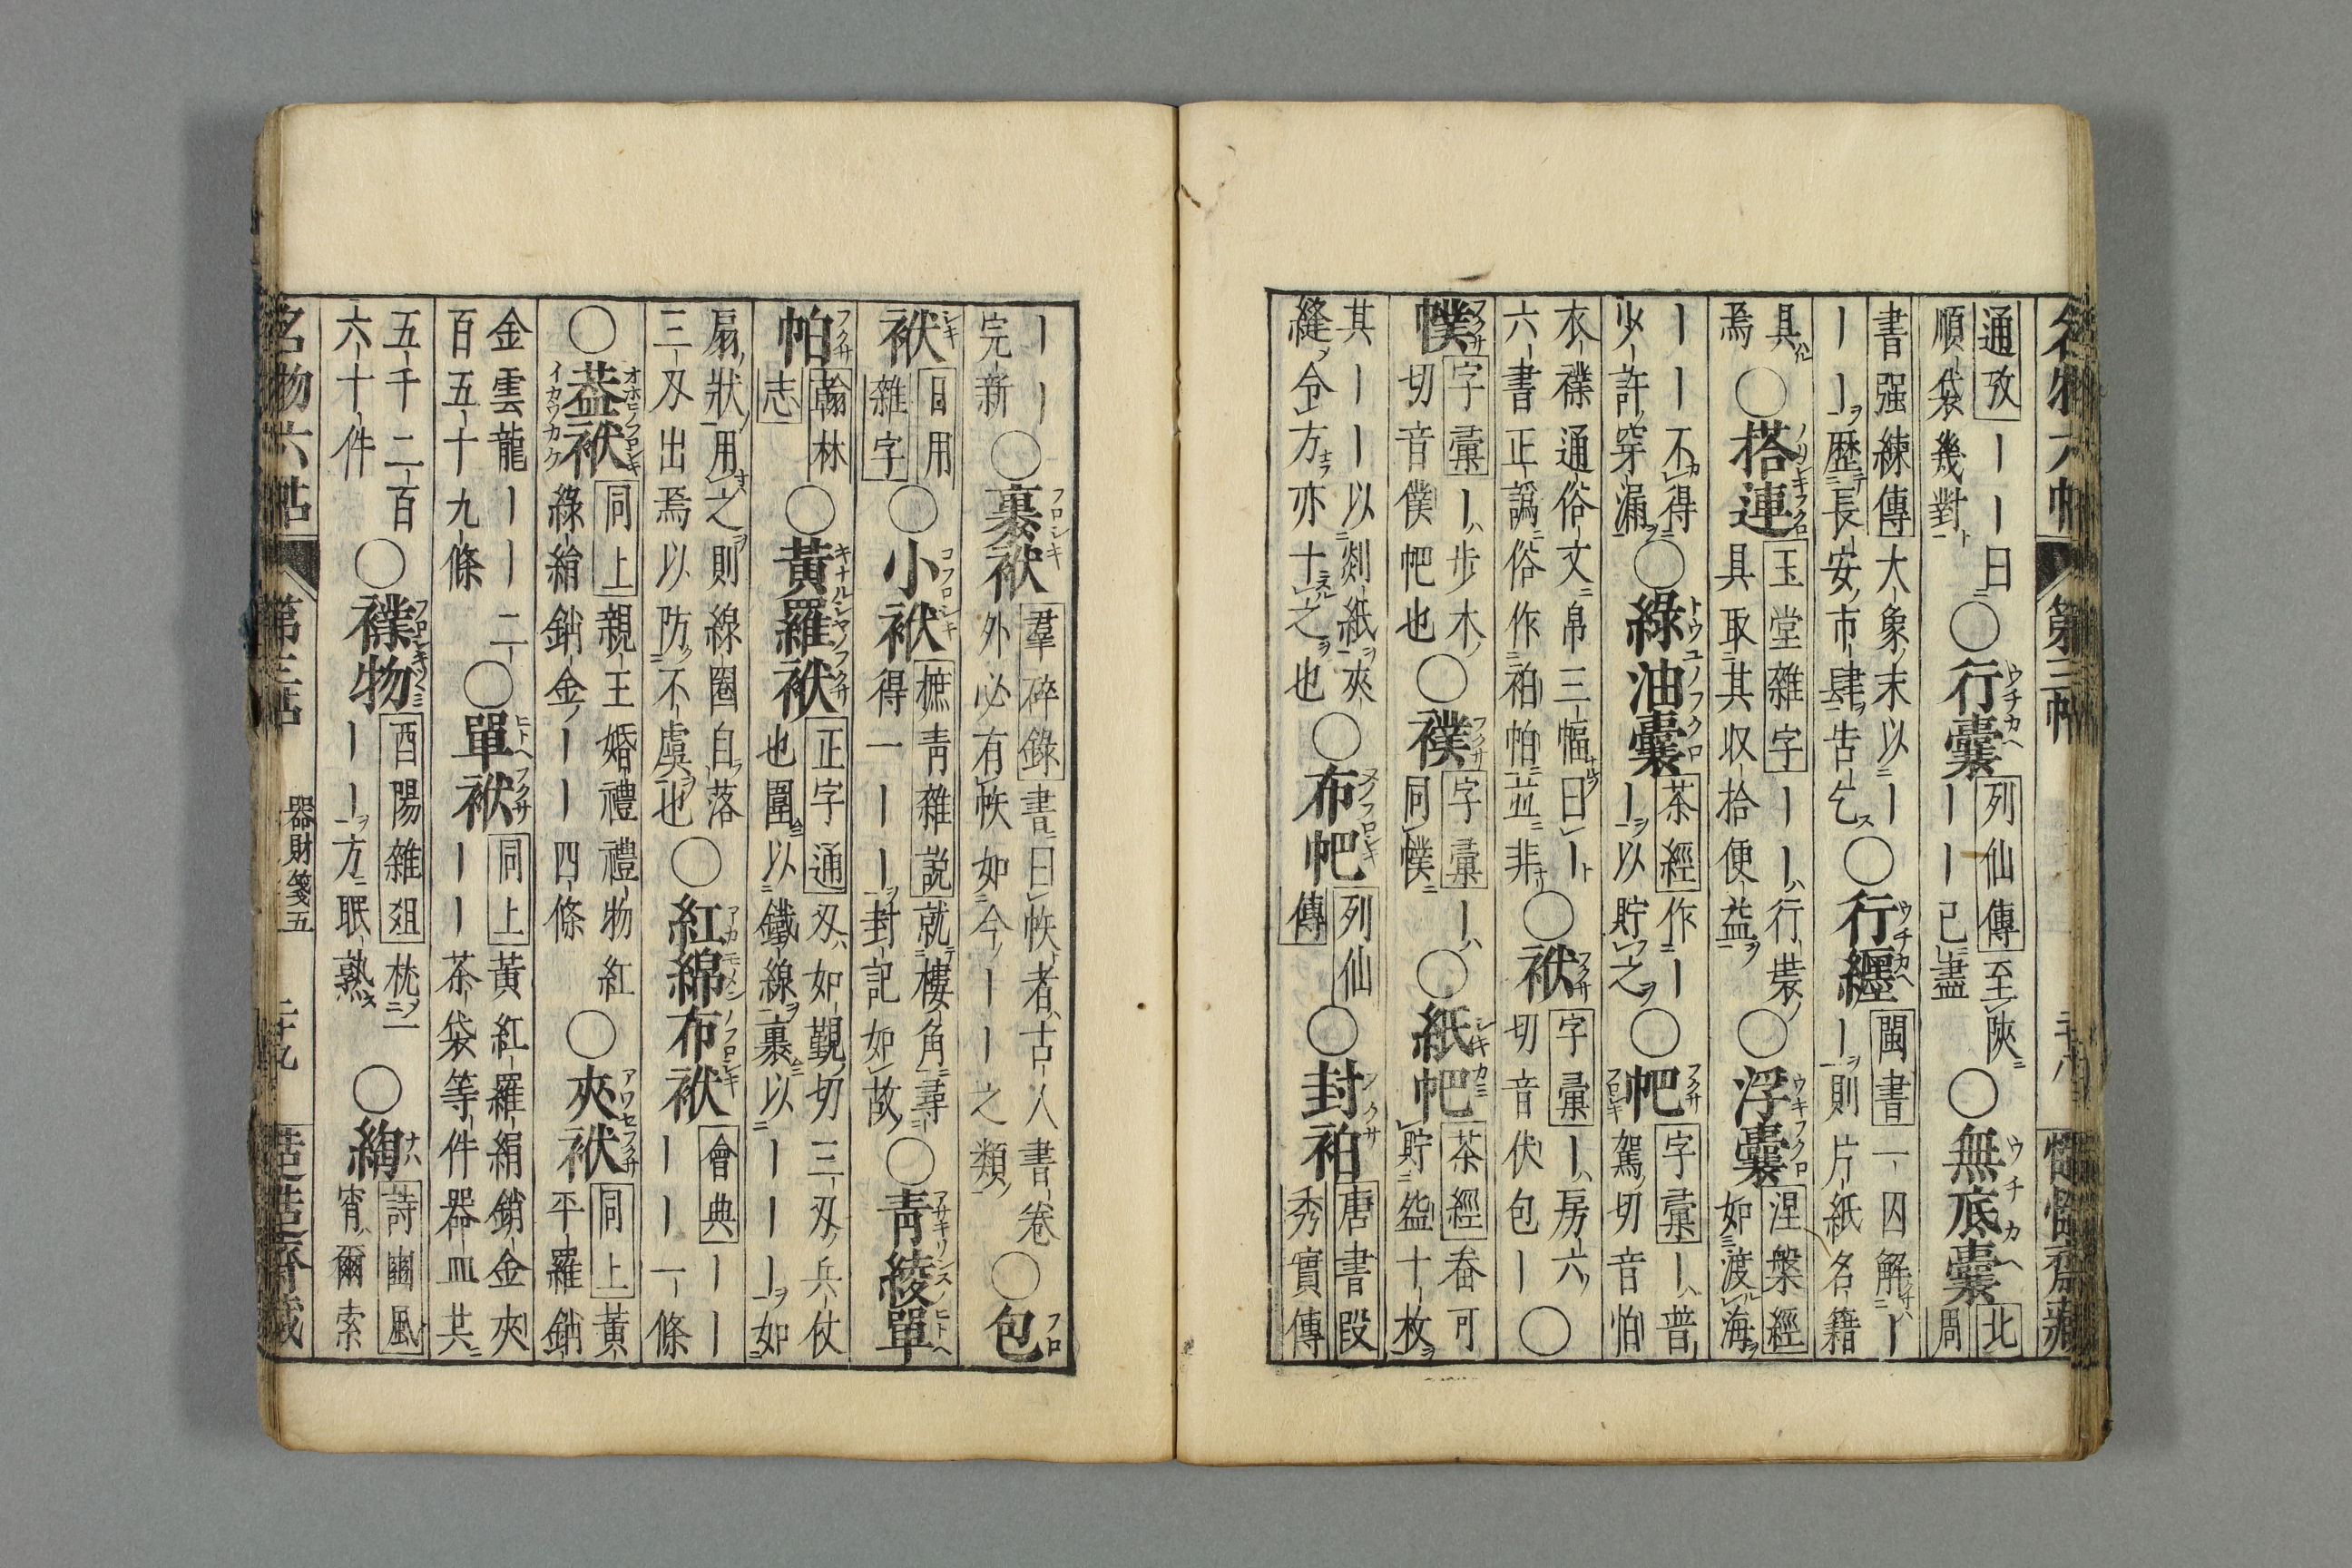 名物六帖 第三帖
通攷｜｜曰
順袋幾對
○行囊 列仙傳 至陝
｜｜已盡
○無底囊 北
周
書强練傳 大象末以｜
｜｜歷長安市肆告乞
○行纒 閩書 一囚解｜
｜則片紙名籍
具
焉
○搭連 玉堂雜字 ｜｜行裝
具取其収拾便益
○浮囊 涅槃經
如渡海
｜｜不得
少許穿漏
○綠油囊 茶經 作｜
｜以貯之
○帊 字彙 ｜普
駕切音怕
衣襆通俗文帛三幅曰｜
六書正譌俗作袙帕並非
○袱 字彙 ｜房六
切音伏包｜
○
幞 字彙 ｜步木
切音僕帊也
○襆 字彙 ｜
同幞
○紙帊 茶經 畚可
貯盌十枚
其｜｜以剡紙夾
縫令方亦十之也
○布帊 列仙
傳
○封袙 唐書段
秀實傳
｜｜
完新
○裹袱 羣碎錄 書曰帙者古人書卷
外必有帙如今｜｜之類
○包
袱 日用
雜字
○小袱 樜青雜説 就樓角尋
得一｜｜封記如故
○青綾單
帕 翰林
志
○黃羅袱 正字通 刄如覲切三刄兵仗
也圍以鐵線裹以｜｜｜如
扇狀用之則線圈自落
三刄出焉以防不虞也
○紅綿布袱 會典 ｜｜
｜｜一條
○葢袱 同上 親王婚禮禮物紅
綠絹銷金｜｜四條
○夾袱 同上 黃
平羅銷
金雲龍｜｜二
百五十九條
○單袱 同上 黃紅羅絹銷金夾
｜｜茶袋等件器皿共
五千二百
六十件
○襆物 酉陽雜俎 枕一
｜｜方眠熟
○綯 詩豳風
宵爾索
名物六帖 第三帖 器財箋五 二十九